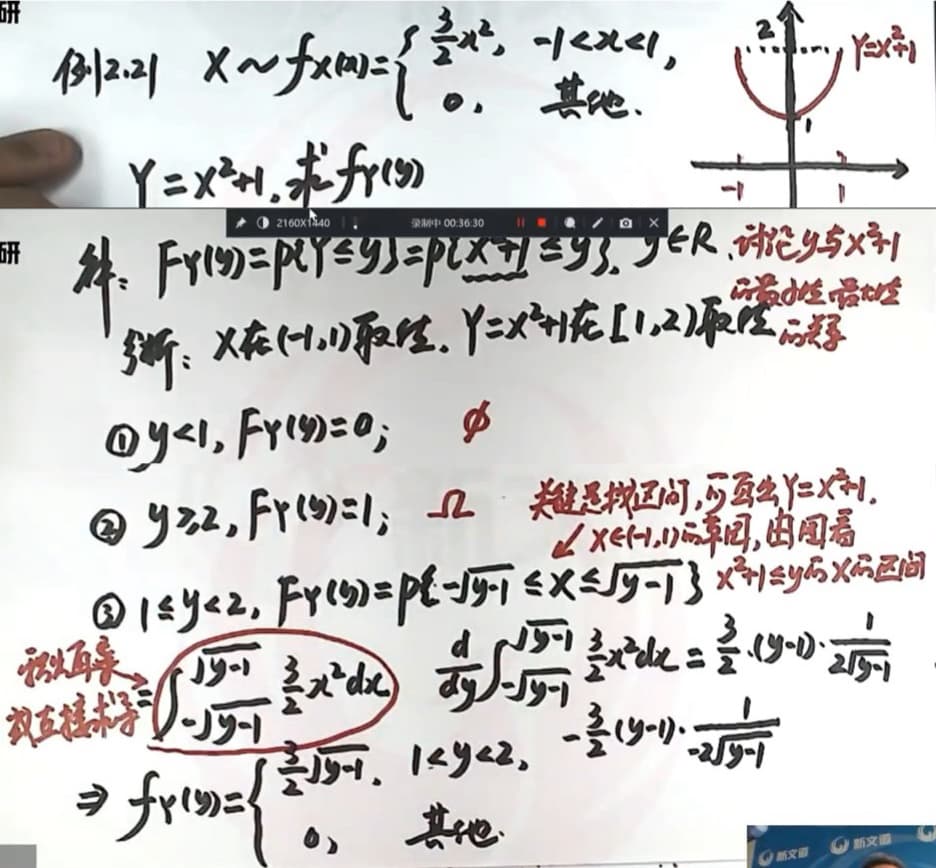 研
例2.21 X~fx(x)={ 3/2 x², -1<x<1,
0, 其他.
2
Y=x²+1
1
-1 1
Y=X²+1,求fY(y)
2160X1440 录制中 00:36:30
研
解: FY(y)=P{Y≤y}=P{X²+1≤y}, y∈R.
讨论y与x²+1
的最小值最大值
的关系
分析: X在(-1,1)取值. Y=X²+1在[1,2)取值
①y<1, FY(y)=0; ϕ
②y≥2, FY(y)=1; Ω
关键是找区间,可画出Y=x²+1,
↙x∈(-1,1)的草图,由图看
x²+1≤y的X的区间
③1≤y<2, FY(y)=P{-√(y-1) ≤X≤√(y-1)}
故直接求导
=∫_{-√(y-1)}^{√(y-1)} 3/2 x²dx
d/dy ∫_{-√(y-1)}^{√(y-1)} 3/2 x²dx = 3/2·(y-1)· 1/(2√(y-1))
-3/2(y-1)· 1/(-2√(y-1))
⇒ fY(y)={ 3/2 √(y-1), 1<y<2,
0, 其他.
新文道 新文道